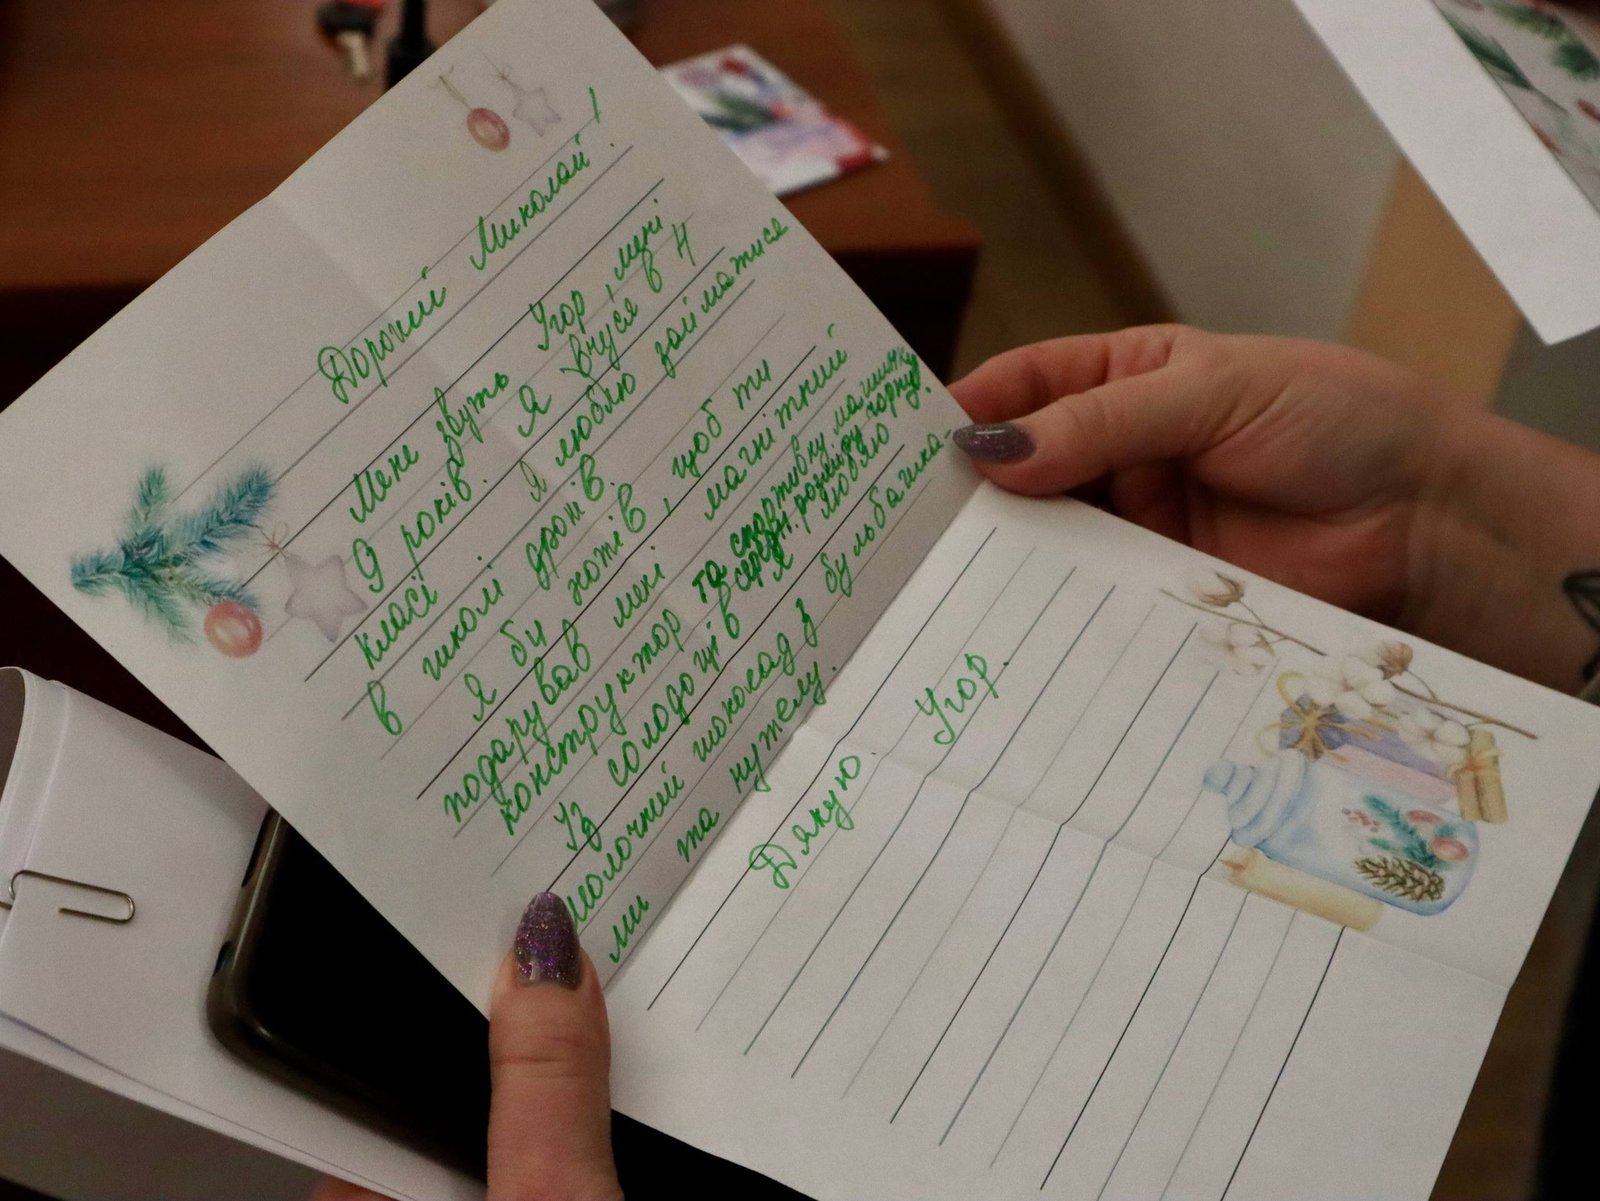 Дорогий Миколай!
Мене звуть Ігор, мені
9 років. Я вчуся в 4
класі. Я люблю займатися
в школі дронів.
Я би хотів, щоб ти
подарував мені магнітний
конструктор та спортивну машинку
середн. розміру чорну.
Із солодощів я люблю
молочний шоколад з бульбашка-
ми та нутелу.
Дякую. Ігор.